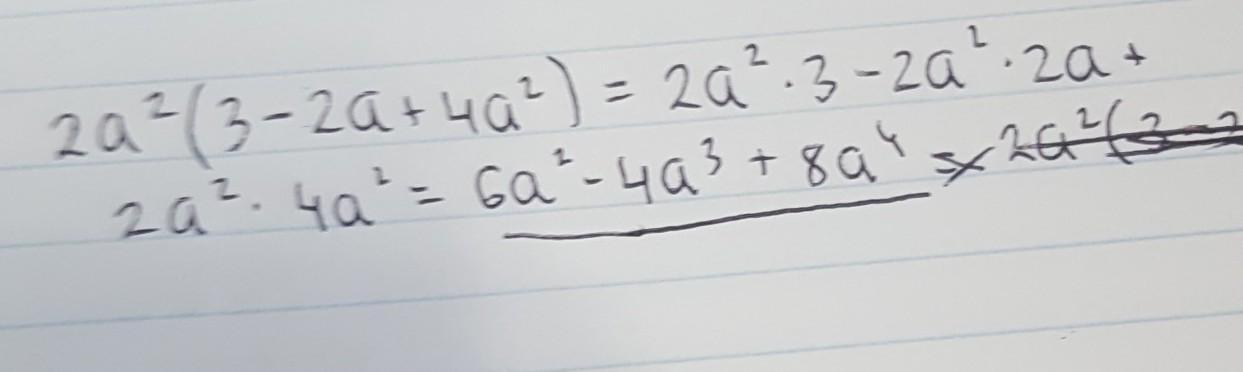 2a²(3-2a+4a²) = 2a²·3-2a²·2a+
2a²·4a² = 6a²-4a³+8a⁴ = 2a²(3-